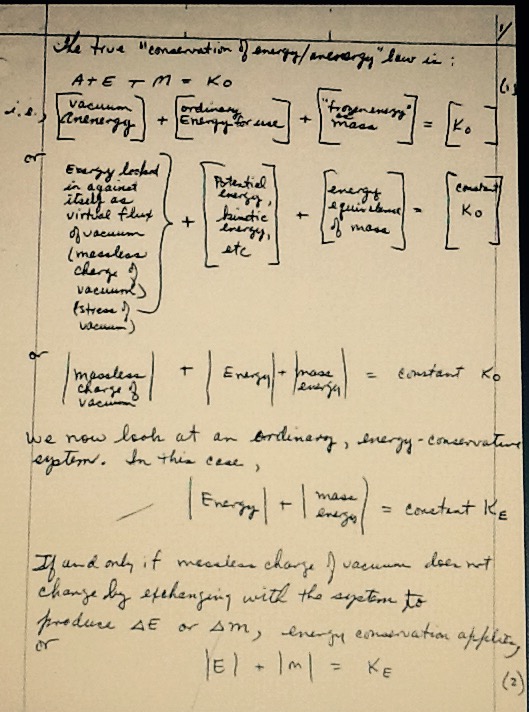 1/
The true "conservation of energy/anenergy" law is:
A + E + M = K0 (1)
i.e., [vacuum Anenergy] + [ordinary Energy for use] + ["frozen energy" as mass] = [K0]
or
Energy locked in against itself as virtual flux of vacuum (massless charge of vacuum) (stress of vacuum) } + [Potential energy, kinetic energy, etc] + [energy equivalence of mass] = [constant K0]
or
|massless charge of vacuum| + |Energy| + |mass energy| = constant K0
We now look at an ordinary, energy-conservative
system. In this case,
|Energy| + |mass energy| = constant KE
If and only if massless charge of vacuum does not
change by exchanging with the system to
produce ΔE or Δm, energy conservation applies,
or
|E| + |m| = KE (2)